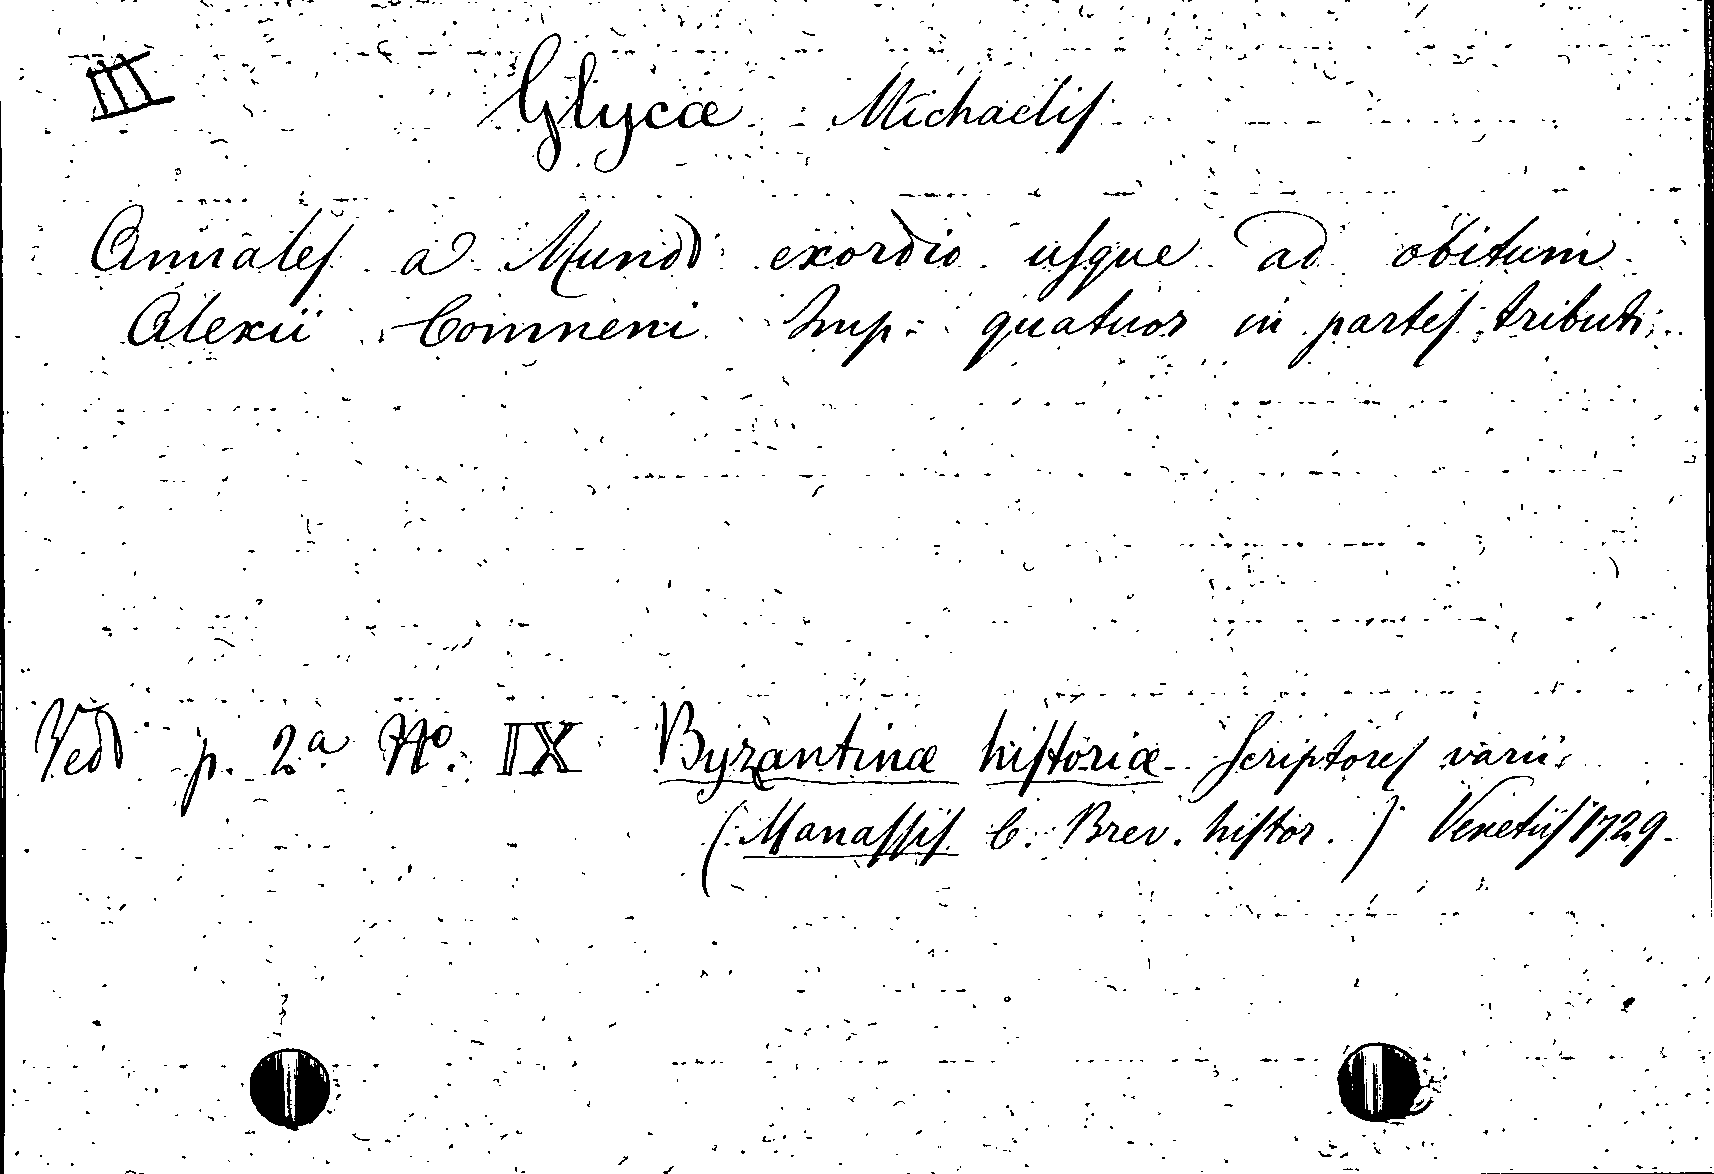 III
Glycæ Michaelis
Annales a Mundi exordio usque ad obitum
Alexii Comneni Imp: quatuor in partes tributi:
Vedi p. 2a No. IX Byzantinæ historiæ Scriptores varii:
(Manassis C. Brev. histor.) Venetiis 1729.